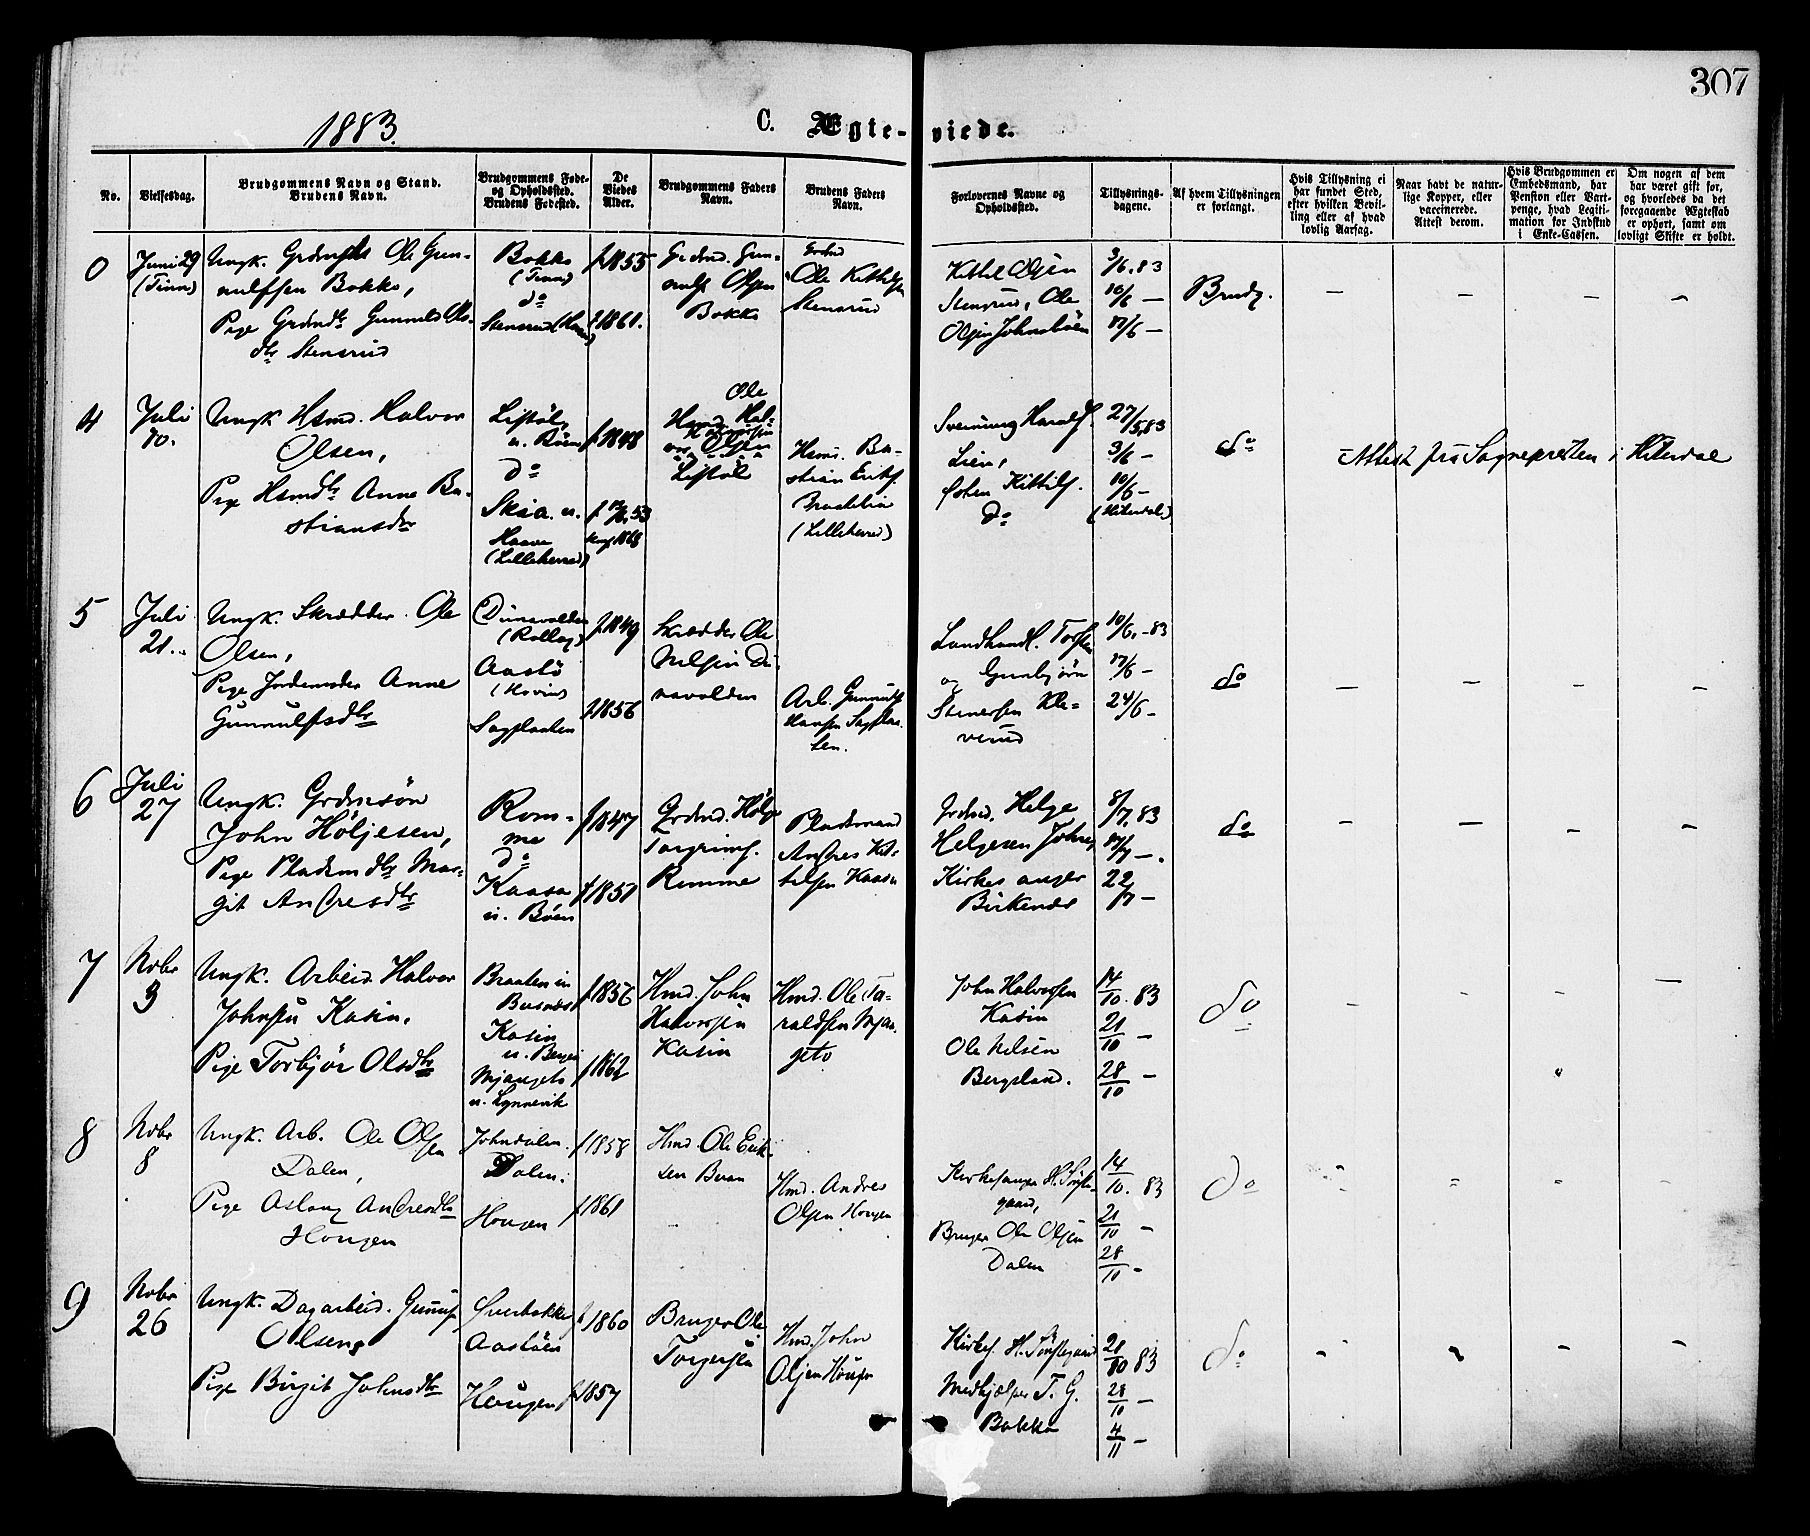 307
1883.
C. Ægte-viede.
No.
Vielsesdag.
Brudgommens Navn og Stand.
Brudens Navn.
Brudgommens Føde-
og Opholdssted.
Brudens Fødested.
De
Viedes
Alder.
Brudgommens Faders
Navn.
Brudens Faders
Navn.
Forlovernes Navne og
Opholdssted.
Tillysnings-
dagene.
Af hvem Tillysningen
er forlangt.
Hvis Tillysning ei
har fundet Sted,
efter hvilken Bevil-
ling eller af hvad
lovlig Aarsag.
Naar havt de natur-
lige Kopper, eller
vaccinerede.
Attest derom.
Hvis Brudgommen er
Embedsmand, har
Pension eller Vart-
penge, hvad Legiti-
mation for Indskud
i Enke-Cassen.
Om nogen af dem
har været gift før,
og hvorledes da det
foregaaende Ægteskab
er ophørt, samt om
lovligt Skifte er holdt.
0
Juni 29
(Tinn)
Ungk. Ole Gun-
nulfsen Bokko,
Pige Gunnild Ols-
dtr Stensrud
Bokko
(Tinn)
do
Stensrud
f 1855
f 1861.
Grdmd. Gun-
nulf Olsen
Bokko
Grdmd
Ole Kittilsen
Stensrud
Kittil Olsen
Stensrud, Ole
Olsen Johnsbøen
3/6. 83
10/6 —
17/6 —
Brudg.
4
Juli
10.
Ungk. Hsmd. Halvor
Olsen,
Pige Hsmdtr Anne Ba-
stiansdtr
Listøl,
u. Bøen
do
Skia. u.
Haave
(Lilleherred)
f 1848
f 53
1868
Ole
Listøl
Hsmd. Ba-
stian
(Lilleherred)
Sveinung
Lien,
Østen Kittils.
do
27/5 83
3/6 —
10/6 —
(Hiterdal)
do
Attest fra Sognepresten i Hiterdal
5
Juli
21.
Ungk. Skrædder Ole
Olsen,
Pige Anne
Gunnulfsdtr
(Rollag)
Aaslø
(Hovin)
Sagpladsen
f 1849
f 1856
Skrædder Ole
Nilsen
Arb. Gunnulf
Hansen
Landhandl. Torsten
og Gunbjørn
Stenersen Kle-
verud
10/6. -83
17/6 —
24/6 -
do
6
Juli
27
Ungk. Grdmsøn
John Høljesen,
Pige Pladsmdtr Mar-
git Andresdtr
Rom-
me
do
Kaasa
u. Bøen
f 1847
f 1857
Grdmd. Hølje
Torgrims.
Romme
Pladsmand
Andres Kit-
tilsen Kaasa
Grdmd. Helge
Helgesen
Kirkesanger
Birkenes
8/7. 83
—.
22
/7 —
do
7
Nobr
3
Ungk. Arbeid. Halvor
Johnsen Kasin,
Pige Torbjør Olsdtr
Braaten
Kasin
Mjangeto
u. Lynnevik
f 1856
f 1862
Hmd. John
Halvorsen
Kasin
Hmd. Ole Ta-
raldsen Mjan-
geto
John Halvorsen
Kasin
Ole Nilsen
Bergsland.
14/10. 83
21/10 —
28/10 —
do
8
Nobr
8
Ungk. Arb. Ole Olsen
Dalen,
Pige Aslaug Andresdtr
Hougen
Johndalen
Dalen.
Hougen
f 1858
f 1861
Hmd. Ole Erik-
sen
Hmd. Andres
Olsen Hougen
Kirkesanger H.
gaard,
Bruger Ole Olsen
Dalen
14/10. 83
21/10 —
28/10 -
do
9
Nobr
26
Ungk. Dagarbeid. Gunnulf
Olsen,
Pige Birgit Johnsdtr
Aasbøen
Hougen
f 1860
f 1857
Bruger Ole
Torgersen
Hmd. John
Olsen Hougen
Kirkes. H.
Medhjælper T. G.
Bokko
21/10 83
28/10 —
4/11 —
do